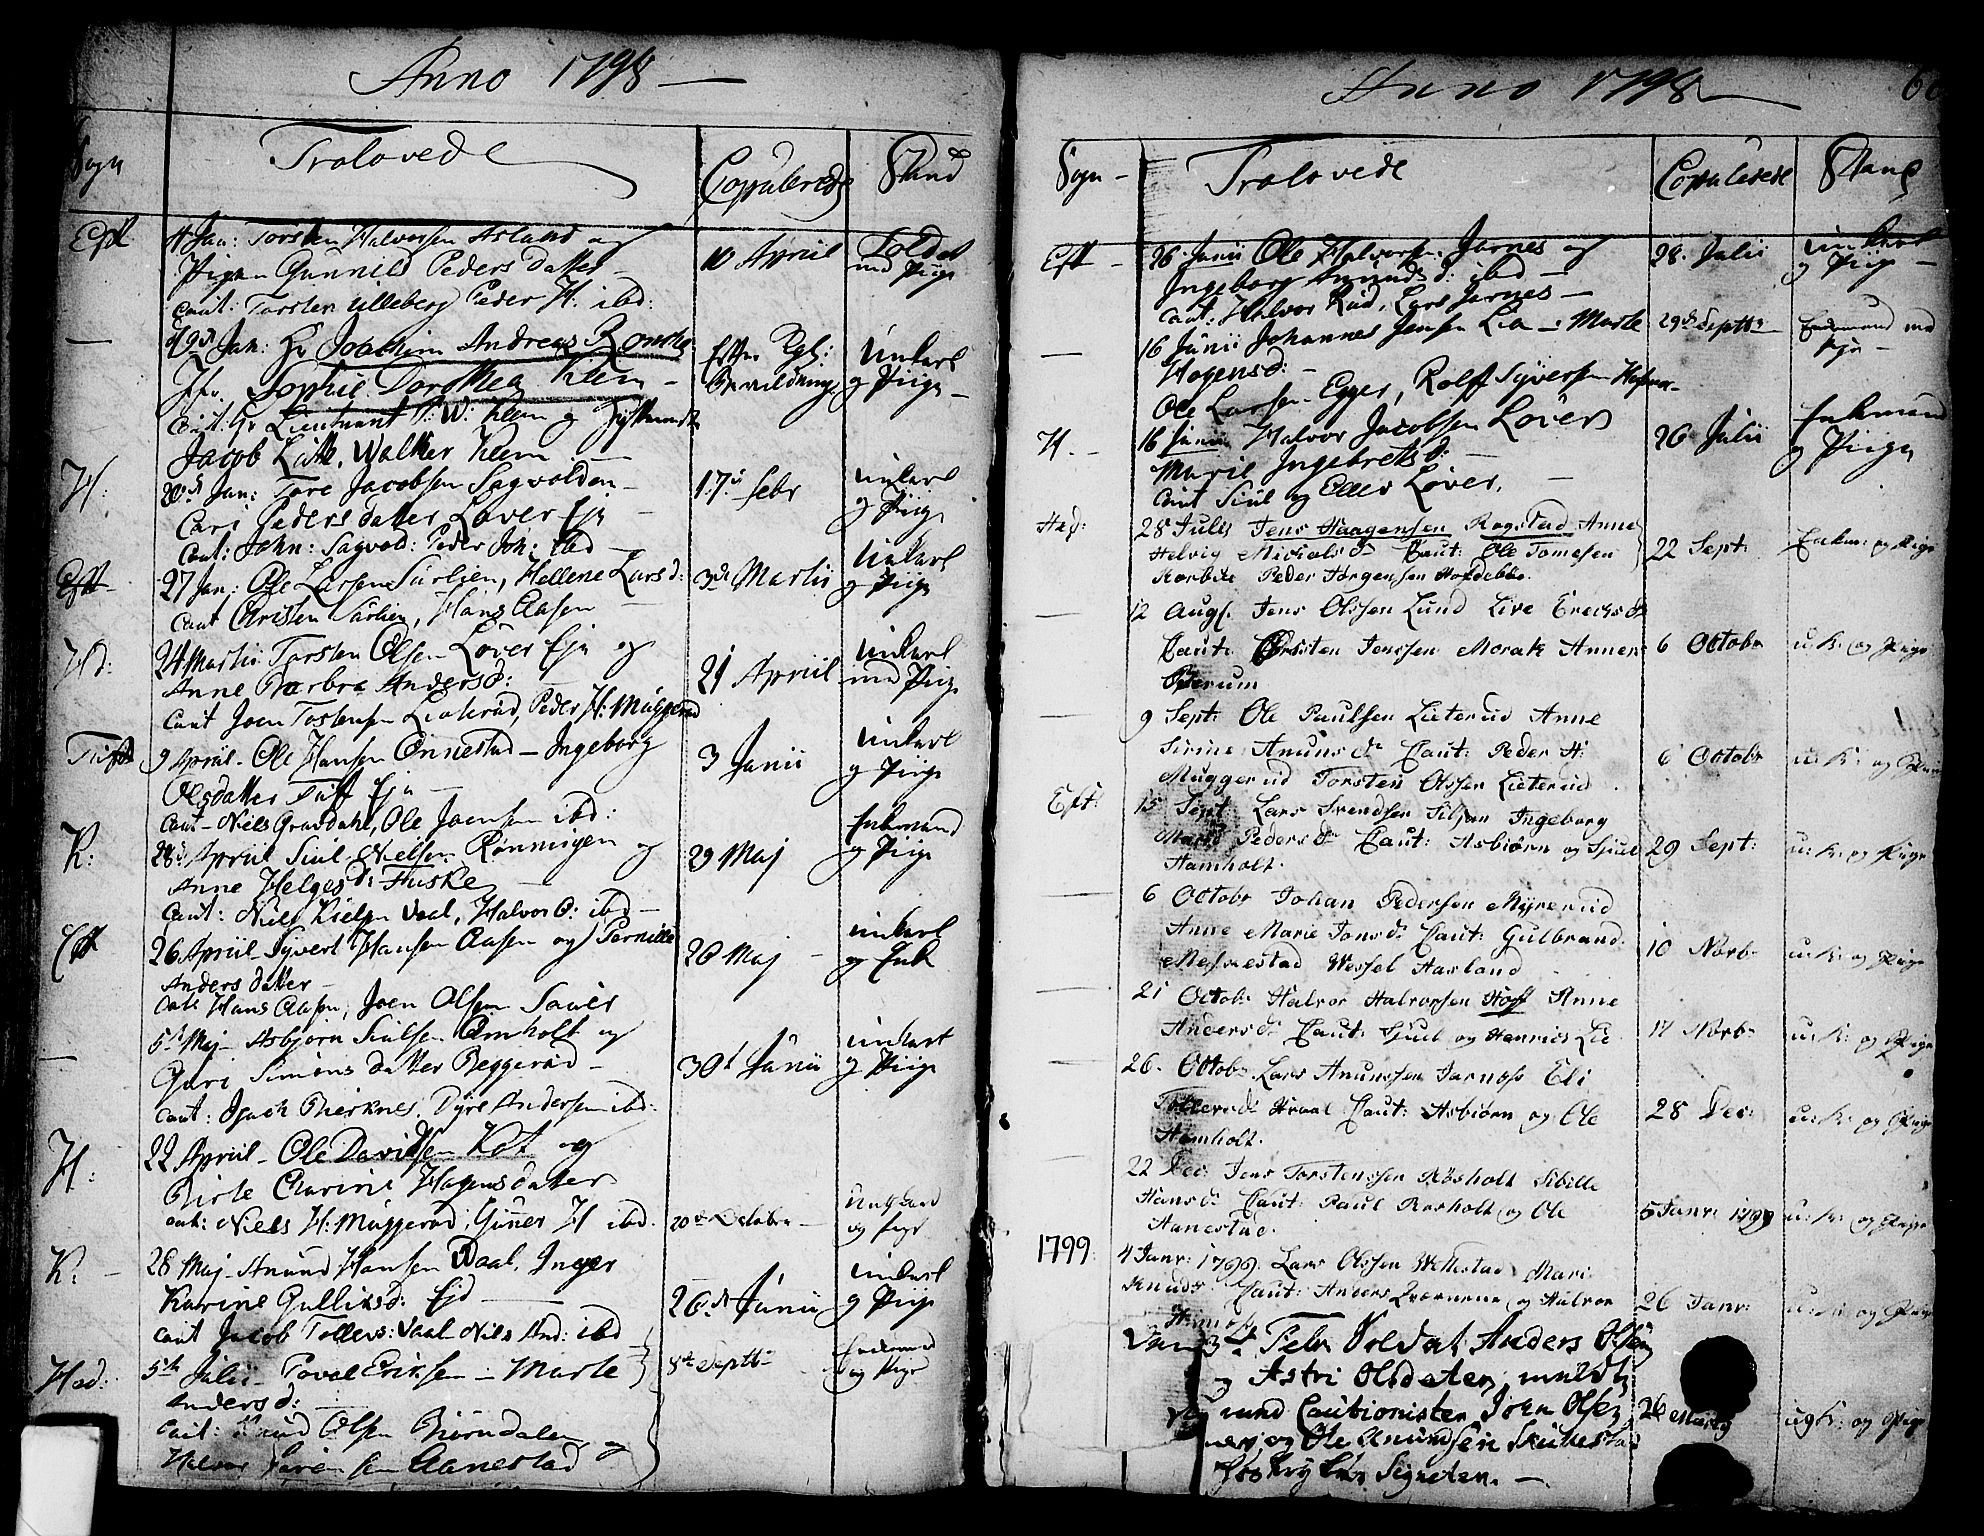 Anno 1798
Sogn
Trolovede
Copulerede
Stand
Eft
4 Jan: Torsten Halvorsen Asland og
Pigen Gunnild Peders datter
Caut: Torsten Ulleberg Peder H. ibd:
10 April
Soldat
med Pige
Jan: Hr Joachim Andreas
Jfr. Sophie Dorothea Klem
Caut: Hr Lieutnant P: W: Klem og
Jacob Lütk. Walker Klem
Efter Kgl:
Bevilding
Unkarl
og Pige
H:
20de Jan: Tore Jacobsen Sagvolden
Cari Peders datter Løver Eje
Caut: John: Sagvold: Peder Joh: ibd
17de Febr
Unkarl
og Pige
Eft
27 Jan: Ole Larsen Surlien, Hellene Larsd:
Caut Christen Surlien, Hans Aasen
3de Martii
Unkarl
og Pige
Hd:
24 Martii Torsten Olsen Løver Eje og
Anne Barbra Andersd:
Caut Joen Tostensen Lieterud, Peder H: Muggerud
21 April
Unkarl
med Pige
Tuft
9 April Ole Hansen Onnestad Ingeborg
Olsdatter Tuft Eje
Caut Niels Gravdahl, Ole Joensen ibd:
3 Junii
Unkarl
og Pige
K:
28de April Siul Nielsen Rønningen og
Anne Helgesd: Fuske
Caut: Niels Kielsen Vaal, Halvor O: ibd
29 Maj
Enkmand
og Pige
Eft
26 April Syvert Hansen Aasen og Pernille
Anders datter
Caut: Hans Aasen, Joen Olsen Sauer
20 Maj
Unkarl
og Enk
5te Maj Asbjørn Siulsen Omholt og
Guri Simons datter Beggerud
Caut: Isach Birknes, Dyre Andersen ibd:
30te Junii
Unkarl
og Pige
H:
22 April Ole Davidsen Kot og
Birte Carine Hagensdatter
Caut: Niels H: Muggerud, Giner H ibd.
20de October
Ungkarl
og Pige
K:
28 Maj Anund Hansen Waal, Inger
Karine Gulliksd: Ejd
Caut Jacob Tollevs: Vaal Niels And: ibd
26de Junii
Unkarl
og Pige
Hed:
5te Julii Povel Eriksen Marte
Andersd:
Caut: Knud Olsen Biørndalen og
Halvor Sørensen Aanestad
8de Septb
Enkemand
og Pige
Anno 1798
Sogn
Trolovede
Copulerede
Stand
Eft
26 Junii Ole Halvorsen Jarnes og
Ingeborg Anunds d: ibd
Caut: Halvor Rud, Lars Jarnes
28. Julii
Unkarl
og Pige
16 Junii Johannes Jensen Lia Marte
Hagensd:
Ole Larsen Egger, Rolf Syversen
29de Septb
Enkemand med
Pige
H.
16 Junii Halvor Jacobsen Løver
Marie Ingebretsd:
Caut Siul og Ellev Løver.
26 Julii
Enkmand
og Pige
Hed:
28 Julii Jens Haagensen Rogstad Anne
Helvig Michelsd: Caut: Ole Tomesen
Korbøe Peder Jørgensen
22 Sept:
Enkm: og Pige
12 Aug. Jens Olssen Lund Live Erichsd:
Caut: Christen Jenssen Morak Anners
Øderum
6 Octobr
u: K: og Pige
9 Sept: Ole Paulsen Lieterud Anne
Sirine Anunsd: Caut: Peder H:
Muggerud Torsten Olssen Lieterud
6 Octobr
u: K: og Pige
Eft:
15 Sept Lars Svendsen Siljan Ingeborg
Marie Pedersd: Caut: Asbiørn og Siul
Hamholt.
29 Sept:
u: K: og Pige
6 Octobr Johan Pedersen Myrerud
Anne Marie Jonsd: Caut: Gulbrand
Mesnestad Wessel Hasland
10 Novb
u: K: og Pige
21 Octob: Halvor Halvorsen Hoff Anne
Andersd: Caut: Siuel og Henrich Lie.
17 Novb
u: K: og Pige
26. Octobr Lars Anunssen Jarness Eli
Tollevsd: Hvaal Caut: Asbiørn og Ole
Hamholt.
28 Dec:
u: K: og Pige
22 Dec: Jens Torstenssen Røsholt Sibille
Hansd: Caut: Paul Røsholt og Ole
Hanestad.
5 Janr: 1799
u: K: og Pige
1799.
4 Janr: 1799. Lars Olssen Wettestad Mari
Knudsd: Caut: Anders Qværnene og Halvor
26 Janr:
u: K: og Pige
3de Febr Soldat Anders Olsen
og Astri Olsdaten, meldt
mund Cautionister John Olsen
og Ole Anundsen
Signeten.
26 Martii
ugK: og Pige